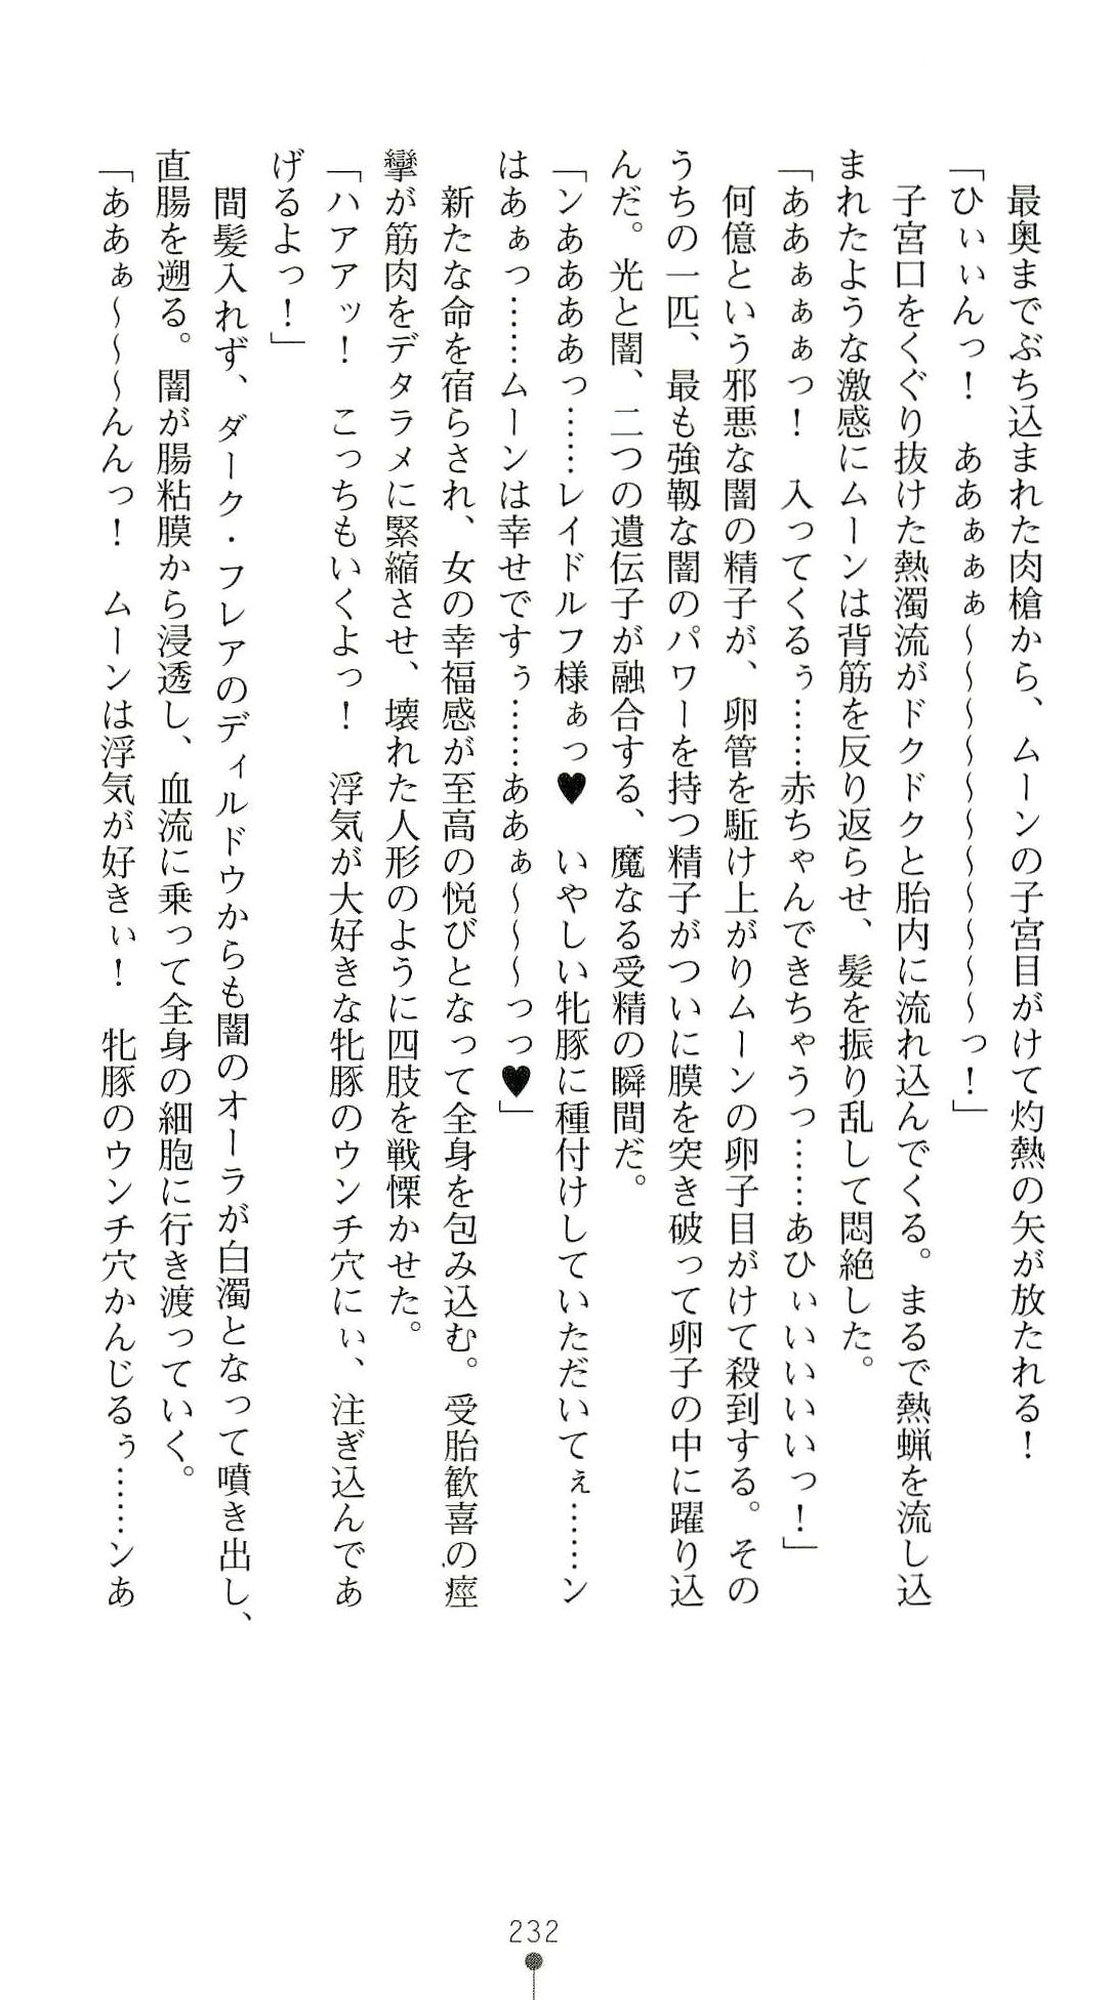 最奥までぶち込まれた肉槍から、ムーンの子宮目がけて灼熱の矢が放たれる！
「ひぃぃんっ！　ああぁぁぁ～～～～～～～～～～っ！」
子宮口をくぐり抜けた熱濁流がドクドクと胎内に流れ込んでくる。まるで熱蝋を流し込
まれたような激感にムーンは背筋を反り返らせ、髪を振り乱して悶絶した。
「ああぁぁぁっ！　入ってくるぅ……赤ちゃんできちゃうっ……あひぃいいいいっ！」
何億という邪悪な闇の精子が、卵管を駈け上がりムーンの卵子目がけて殺到する。その
うちの一匹、最も強靱な闇のパワーを持つ精子がついに膜を突き破って卵子の中に躍り込
んだ。光と闇、二つの遺伝子が融合する、魔なる受精の瞬間だ。
「ンああああっ……レイドルフ様ぁっ♥　いやしい牝豚に種付けしていただいてぇ……ン
はあぁっ……ムーンは幸せですぅ……ああぁ～～～っっ♥」
新たな命を宿らされ、女の幸福感が至高の悦びとなって全身を包み込む。受胎歓喜の痙
攣が筋肉をデタラメに緊縮させ、壊れた人形のように四肢を戦慄かせた。
「ハアアッ！　こっちもいくよっ！　浮気が大好きな牝豚のウンチ穴にぃ、注ぎ込んであ
げるよっ！」
間髪入れず、ダーク・フレアのディルドウからも闇のオーラが白濁となって噴き出し、
直腸を遡る。闇が腸粘膜から浸透し、血流に乗って全身の細胞に行き渡っていく。
「ああぁ～～～んんっ！　ムーンは浮気が好きぃ！　牝豚のウンチ穴かんじるぅ……ンあ
232